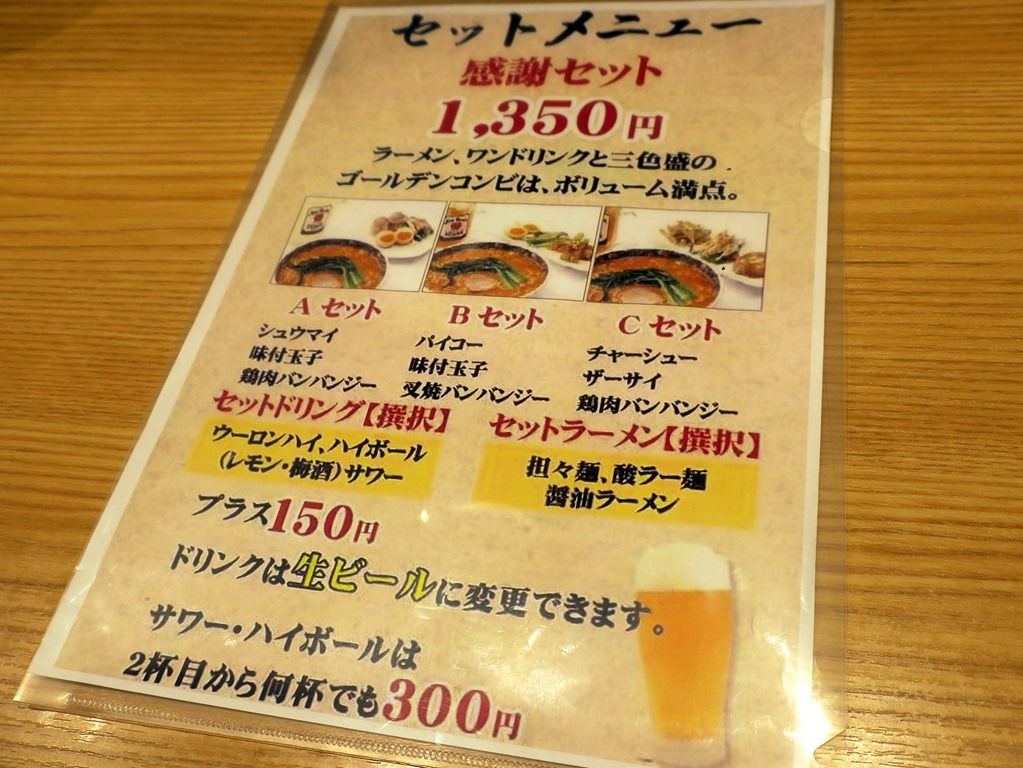 セットメニュー
感謝セット
1,350円
ラーメン、ワンドリンクと三色盛の
ゴールデンコンビは、ボリューム満点。
Aセット
シュウマイ
味付玉子
鶏肉バンバンジー
Bセット
パイコー
味付玉子
叉焼バンバンジー
Cセット
チャーシュー
ザーサイ
鶏肉バンバンジー
セットドリング【撰択】
ウーロンハイ、ハイボール
(レモン・梅酒)サワー
セットラーメン【撰択】
担々麺、酸ラー麺
醤油ラーメン
プラス150円
ドリンクは生ビールに変更できます。
サワー・ハイボールは
2杯目から何杯でも300円